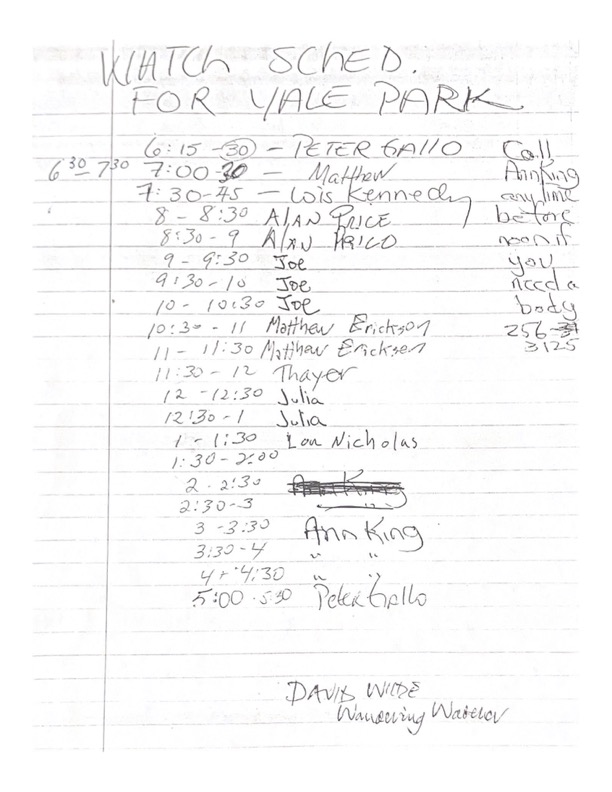 WATCH SCHED.
FOR YALE PARK
6:15 - 30 - PETER GALLO
6 30 - 7 30 7:00 30 - Matthew
7:30-45 - Lois Kennedy
8 - 8:30 ALAN PRICE
8:30 - 9 ALAN PRICE
9 - 9:30 Joe
9:30 - 10 Joe
10 - 10:30 Joe
10:30 - 11 Matthew Erickson
11 - 11:30 Matthew Ericksen
11:30 - 12 Thayer
12 - 12:30 Julia
12:30 - 1 Julia
1 - 1:30 Lou Nicholas
1:30 - 2:00
2 - 2:30 Ann King
2:30 - 3 "
3 - 3:30 Ann King
3:30 - 4 " "
4 - 4:30 " "
5:00 - 5:30 Peter Gallo
Call
Ann King
anytime
before
noon if
you
need a
body
256-
3125
DAVID WILDE
Wandering